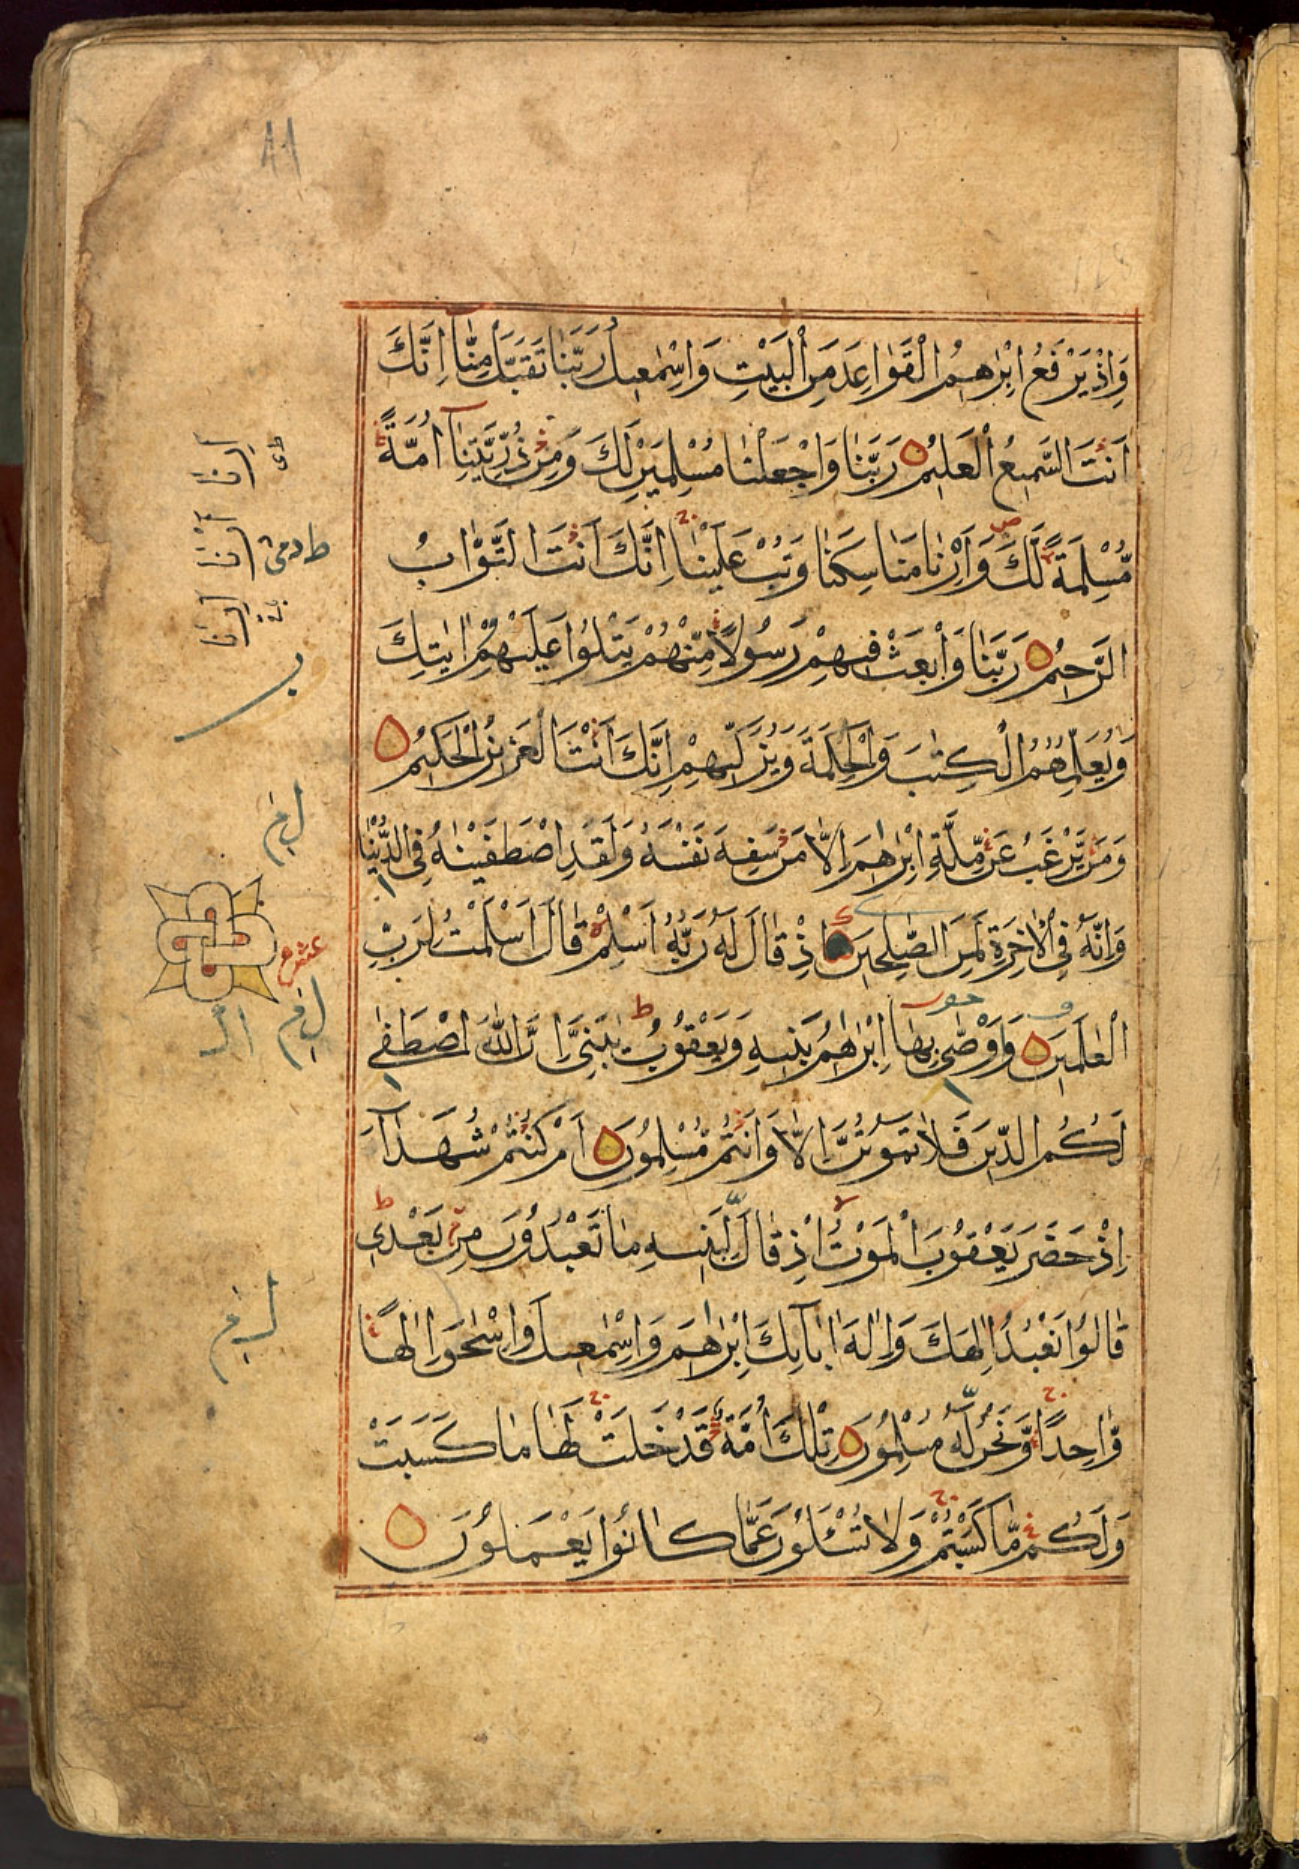 وَاِذْ يَرْفَعُ اِبْرٰهٖمُ الْقَوَاعِدَ مِنَ الْبَيْتِ وَاِسْمٰعٖيلُ رَبَّنَا تَقَبَّلْ مِنَّا اِنَّكَ
اَنْتَ السَّمٖيعُ الْعَلٖيمُ رَبَّنَا وَاجْعَلْنَا مُسْلِمَيْنِ لَكَ وَمِنْ ذُرِّيَّتِنَا اُمَّةً
مُّسْلِمَةً لَّكَ وَاَرِنَا مَنَاسِكَنَا وَتُبْ عَلَيْنَا اِنَّكَ اَنْتَ التَّوَّابُ
الرَّحٖيمُ رَبَّنَا وَابْعَثْ فٖيهِمْ رَسُولًا مِّنْهُمْ يَتْلُوْا عَلَيْهِمْ اٰيٰتِكَ
وَيُعَلِّمُهُمُ الْكِتٰبَ وَالْحِكْمَةَ وَيُزَكّٖيهِمْ اِنَّكَ اَنْتَ الْعَزٖيزُ الْحَكٖيمُ
وَمَنْ يَّرْغَبُ عَنْ مِّلَّةِ اِبْرٰهٖمَ اِلَّا مَنْ سَفِهَ نَفْسَهٗ وَلَقَدِ اصْطَفَيْنٰهُ فِى الدُّنْيَا
وَاِنَّهٗ فِى الْاٰخِرَةِ لَمِنَ الصّٰلِحٖينَ اِذْ قَالَ لَهٗ رَبُّهٗ اَسْلِمْ قَالَ اَسْلَمْتُ لِرَبِّ
الْعٰلَمٖينَ وَوَصّٰى بِهَا اِبْرٰهٖمُ بَنٖيهِ وَيَعْقُوبُ يٰبَنِىَّ اِنَّ اللّٰهَ اصْطَفٰى
لَكُمُ الدّٖينَ فَلَا تَمُوتُنَّ اِلَّا وَاَنْتُمْ مُّسْلِمُونَ اَمْ كُنْتُمْ شُهَدَآءَ
اِذْ حَضَرَ يَعْقُوبَ الْمَوْتُ اِذْ قَالَ لِبَنٖيهِ مَا تَعْبُدُونَ مِنْ بَعْدٖى
قَالُوا نَعْبُدُ اِلٰهَكَ وَاِلٰهَ اٰبَآئِكَ اِبْرٰهٖمَ وَاِسْمٰعٖيلَ وَاِسْحٰقَ اِلٰهًا
وَّاحِدًا وَّنَحْنُ لَهٗ مُسْلِمُونَ تِلْكَ اُمَّةٌ قَدْ خَلَتْ لَهَا مَا كَسَبَتْ
وَلَكُمْ مَّا كَسَبْتُمْ وَلَا تُسْئَلُونَ عَمَّا كَانُوا يَعْمَلُونَ